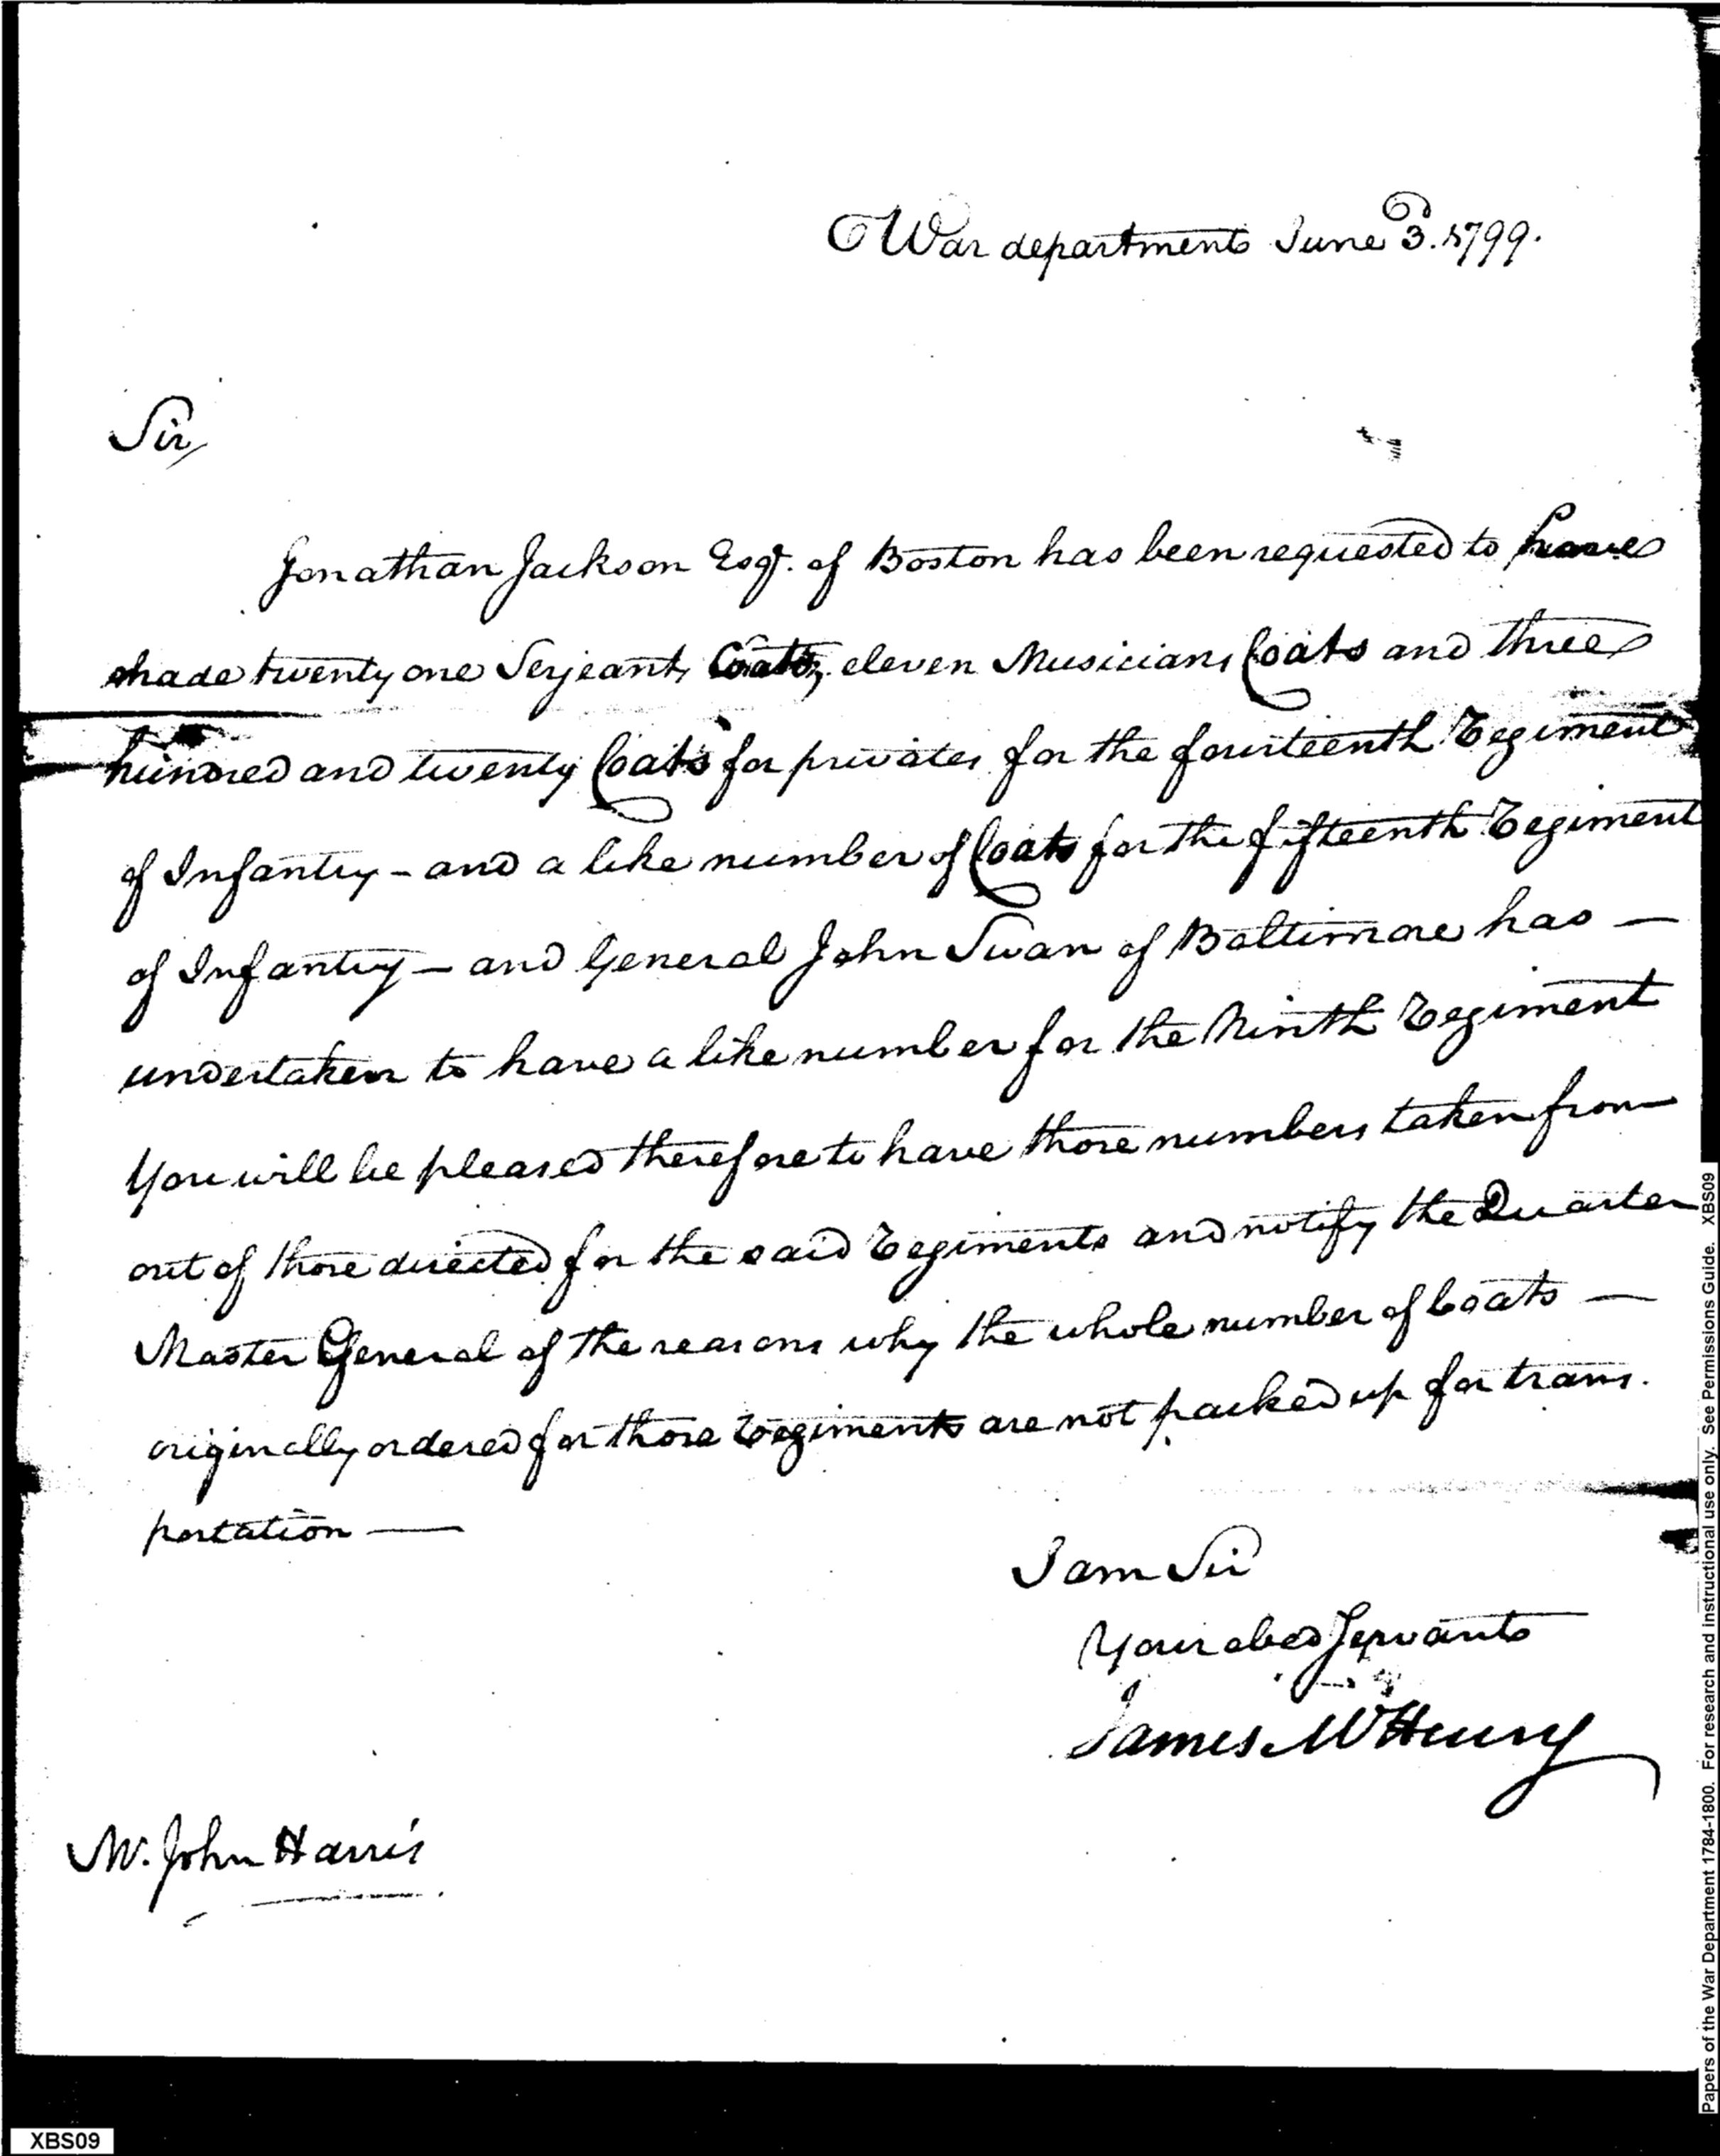 War department June 3. 1799.
Sir,
Jonathan Jackson Esqr. of Boston has been requested to have
made twenty one Serjeants Coats, eleven Musicians Coats and three
hundred and twenty Coats for privates for the fourteenth Regiment
of Infantry - and a like number of Coats for the fifteenth Regiment
of Infantry - and General John Swan of Baltimore has —
undertaken to have a like number for the Ninth Regiment
You will be pleased therefore to have those numbers taken from
out of those directed for the said Regiments and notify the Quarter
Master General of the reasons why the whole number of Coats —
originally ordered for those Regiments are not packed up for trans.
portation —
I am Sir
Your obed Servant
James McHenry
Mr. John Harris
XBS09
Papers of the War Department 1784-1800. For research and instructional use only. See Permissions Guide. XBS09